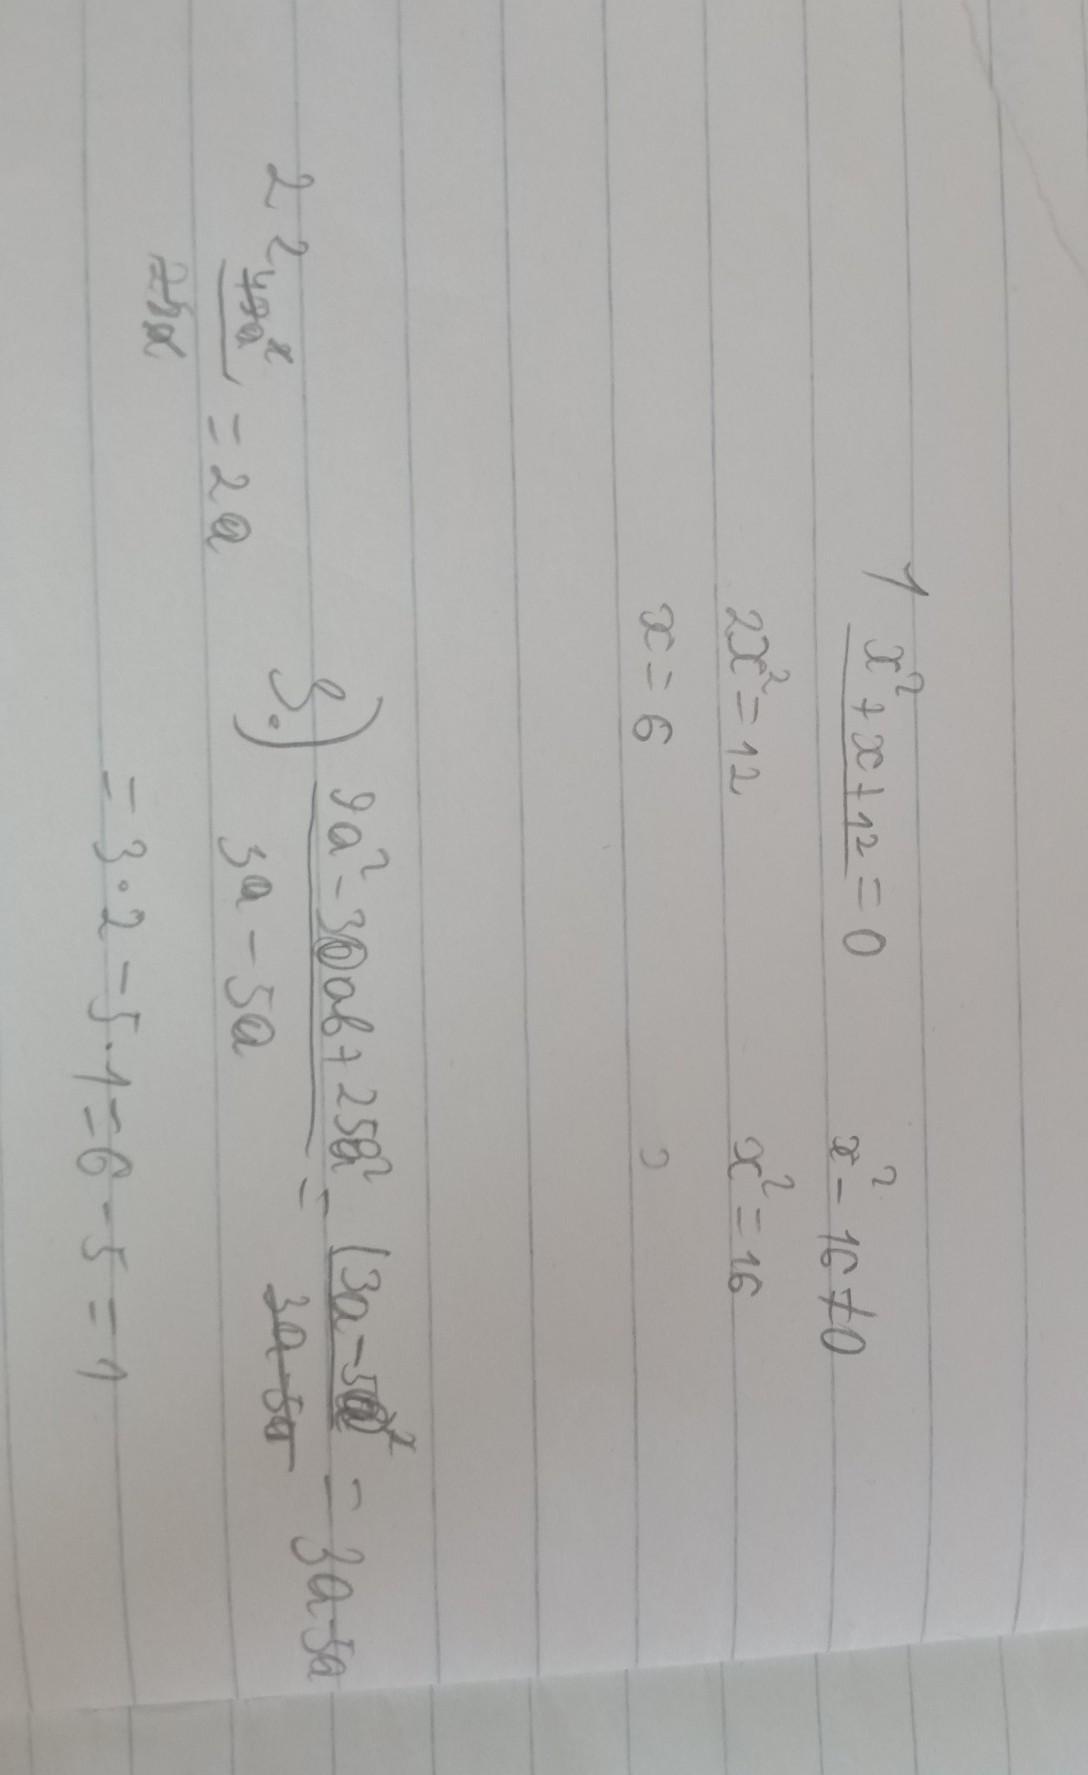 1 x² + x + 12 = 0   x² - 16 ≠ 0
2x² = 12   x² = 16
x = 6
2   = 2a
3.) 9a² - 30ab + 25a² / 3a - 5a = (3a - 5a)² / 3a - 5a = 3a - 5a
= 3 · 2 - 5 · 1 = 6 - 5 = 1